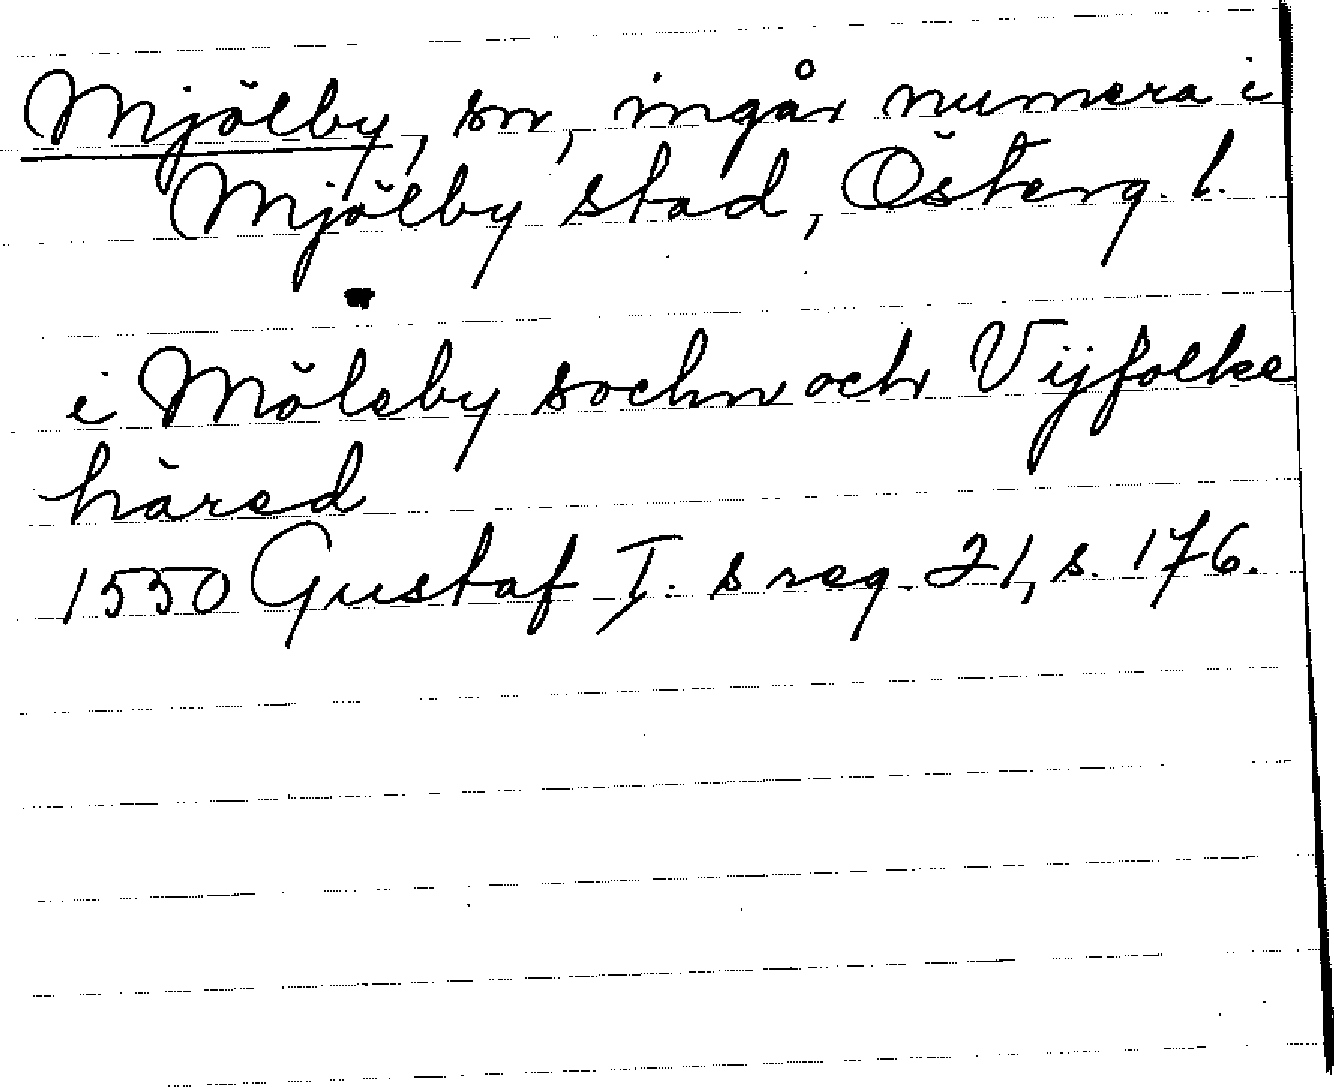 Mjölby, sn, ingår numera i
Mjölby stad, Österg. l.
i Möleby sochn och Vijfolke
häred
1550 Gustaf I:s reg. 21, s. 176.